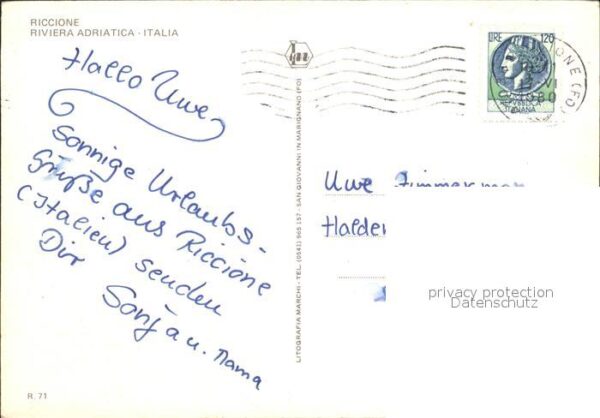 RICCIONE
RIVIERA ADRIATICA - ITALIA
Hallo Uwe
Sonnige Urlaubs-
Grüße aus Riccione
(Italien) senden
Dir
Sonja u. Mama
R. 71
LITOGRAFIA MARCHI - TEL. (0541) 965 157 - SAN GIOVANNI IN MARIGNANO (FO)
LIRE 120
REPUBBLICA
ITALIANA
RICCIONE (FO)
VI
1980
Uwe Zimmerman
Halder
privacy protection
Datenschutz